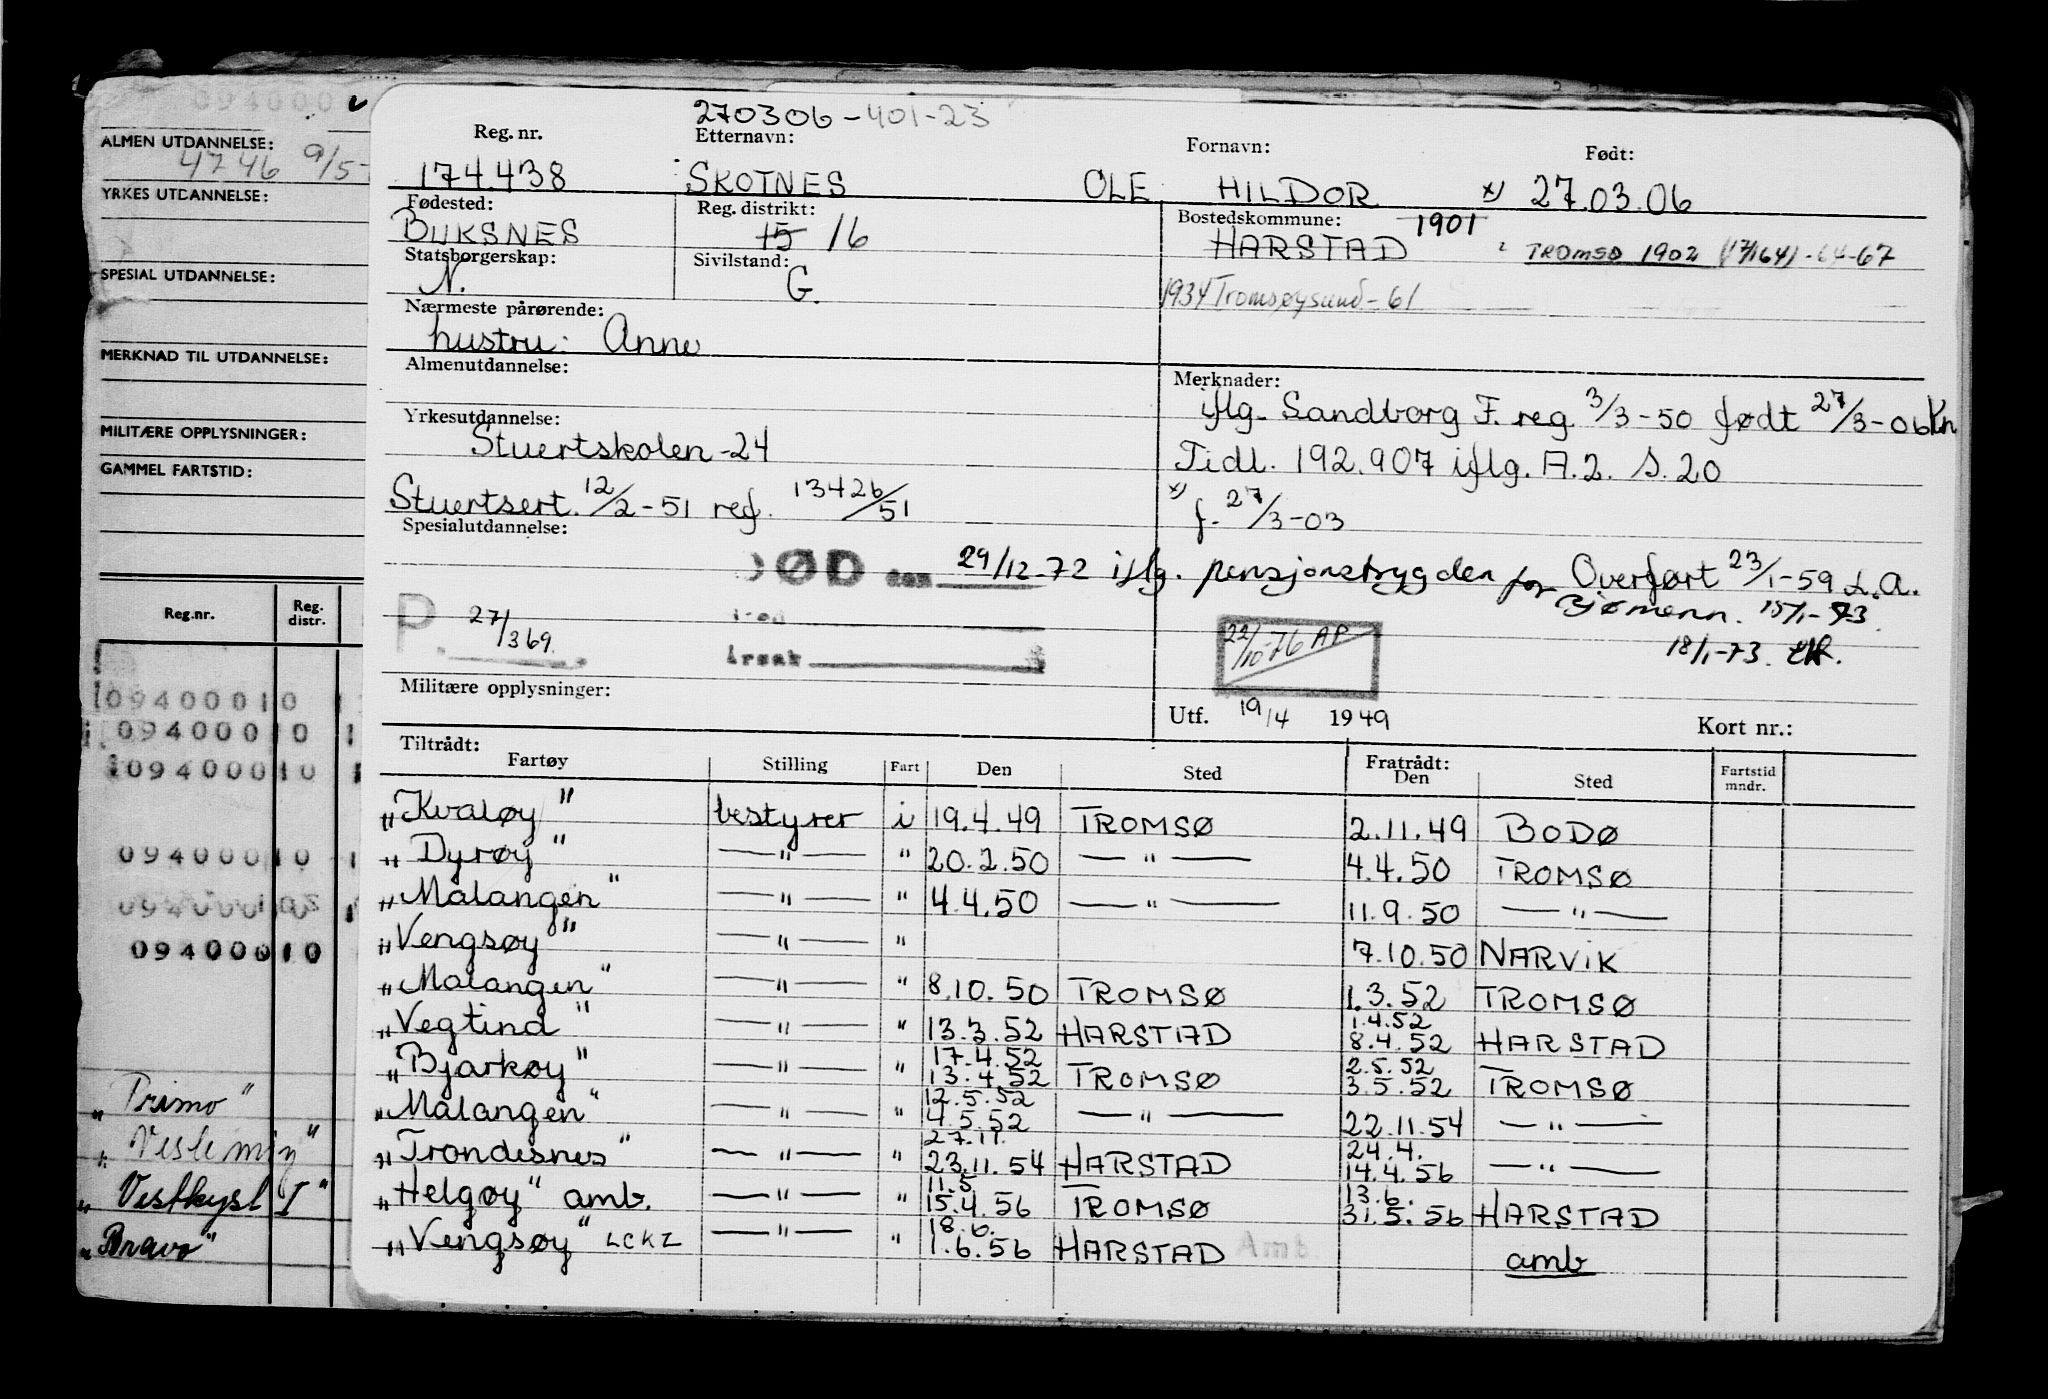 0940001
ALMEN UTDANNELSE:
4746 9/5-
YRKES UTDANNELSE:
SPESIAL UTDANNELSE:
MERKNAD TIL UTDANNELSE:
MILITÆRE OPPLYSNINGER:
GAMMEL FARTSTID:
Reg.nr. Reg. distr.
09400010
09400010
09400010
09400010
09400010
"Primo"
"Veslemøy"
"Vestkyst I"
"Bravo"
270306-401-23
Reg. nr. Etternavn: Fornavn: Født:
174.438 SKOTNES OLE HILDOR x) 27.03.06
Fødested: Reg. distrikt: Bostedskommune: 1901
BUKSNES 15 16 HARSTAD TROMSØ 1902 (17/164) -64-67
Statsborgerskap: Sivilstand:
N. G. 1934 Tromsøysund-61
Nærmeste pårørende:
hustru: Anne
Almenutdannelse: Merknader:
iflg. Sandborg F. reg. 3/3-50 født 27/3-06 Kn
Yrkesutdannelse:
Stuertskolen-24 Tidl. 192.907 iflg. A.2. S.20
Stuertsert. 12/2-51 ref. 13426/51 x) f. 27/3-03
Spesialutdannelse:
DØD den 29/12-72 iflg. pensjonstrygden for Overført 23/1-59 L.A.
sjømenn. 15/1-73.
P. 27/3 69. sted
årsak 22/10-76 AP 18/1-73.
Militære opplysninger:
Utf. 19/4 1949 Kort nr.:
Tiltrådt: Fratrådt:
Fartøy Stilling Fart Den Sted Den Sted Fartstid mndr.
"Kvaløy" bestyrer i 19.4.49 TROMSØ 2.11.49 BODØ
"Dyrøy" —"— " 20.2.50 —"— 4.4.50 TROMSØ
"Malangen" —"— " 4.4.50 —"— 11.9.50 —"—
"Vengsøy" —"— " 7.10.50 NARVIK
"Malangen" —"— " 8.10.50 TROMSØ 1.3.52 TROMSØ
1.4.52
"Vegtind" —"— " 13.3.52 HARSTAD 8.4.52 HARSTAD
17.4.52 2.5.52
"Bjarkøy" —"— " 13.4.52 TROMSØ 3.5.52 TROMSØ
12.5.52
"Malangen" —"— " 4.5.52 —"— 22.11.54 —"—
27.11. 24.4.
"Trondesnes" —"— " 23.11.54 HARSTAD 14.4.56 —"—
11.5 13.6.
"Helgøy" amb. —"— " 15.4.56 TROMSØ 31.5.56 HARSTAD
18.6.
"Vengsøy" LCKZ —"— " 1.6.56 HARSTAD Amb. amb